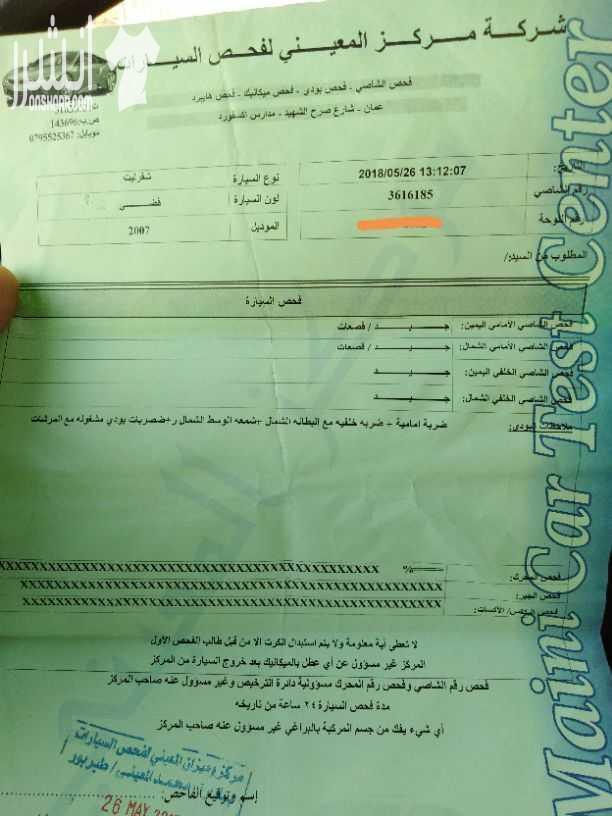 شركة مركز المعيني لفحص السيارات
فحص الشاصي - فحص بودي - فحص ميكانيك - فحص هايبرد
عمان - شارع صرح الشهيد - مدارس اكسفورد
انشرها
onshorha.com
ص.ب: 143696
موبايل: 0795525367
2018/05/26 13:12:07
نوع السيارة شفرليت
رقم الشاصي 3616185
لون السيارة فضي
رقم اللوحة
الموديل 2007
المطلوب من السيد/:
فحص السيارة
فحص الشاصي الأمامي اليمين: جيد / قصعات
فحص الشاصي الأمامي الشمال: جيد / قصعات
فحص الشاصي الخلفي اليمين: جيد
فحص الشاصي الخلفي الشمال: جيد
ملاحظات البودي: ضربة امامية + ضربه خلفيه مع البطانه الشمال +شمعه الوسط الشمال ر+ضصربات بودي مشغوله مع المرشات
فحص المحرك: %
فحص الجير:
لا تعطى أية معلومة ولا يتم استبدال الكرت الا من قبل طالب الفحص الأول
المركز غير مسؤول عن أي عطل بالميكانيك بعد خروج السيارة من المركز
فحص رقم الشاصي وفحص رقم المحرك مسؤولية دائرة الترخيص وغير مسؤول عنه صاحب المركز
مدة فحص السيارة ٢٤ ساعة من تاريخه
أي شيء يفك من جسم المركبة بالبراغي غير مسؤول عنه صاحب المركز
مركز وميزان المعيني لفحص السيارات
محمد المعيني / طبربور
إسم وتوقيع الفاحص:
26 MAY
Maini Car Test Center